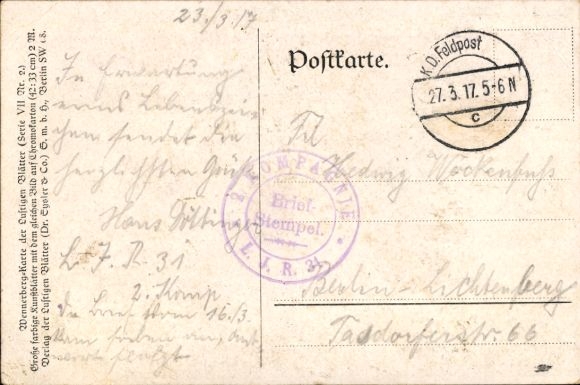 23./3.17
In Erwartung
eines Lebenszei-
chen sendet die
herzlichsten Grüße
Hans
L. J. R. 31
2. Komp
Brief vom 16./3.
kam soeben an, Ant-
wort folgt
Wennerberg-Karte der Lustigen Blätter (Serie VII Nr. 2.)
Große farbige Kunstblätter mit dem gleichen Bild auf Chromokarton (42:33 cm) 2 M.
Verlag der Lustigen Blätter (Dr. Eysler & Co.) G. m. b. H., Berlin SW 68.
Postkarte.
K.D. Feldpost
27.3.17.5-6N
c
2. KOMPAGNIE
Brief-
Stempel.
L. J. R. 31
Frl.
Hedwig Wöckenfuß
Berlin-Lichtenberg
Tasdorferstr. 66